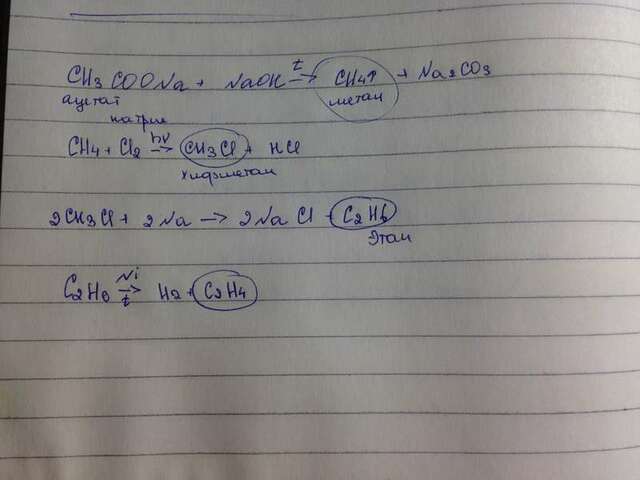 CH3COONa + NaOH t→ CH4↑ + Na2CO3
ацетат метан
натрия
CH4 + Cl2 hν→ CH3Cl + HCl
хлорметан
2CH3Cl + 2Na → 2NaCl + C2H6
Этан
C2H6 Ni→t H2 + C2H4